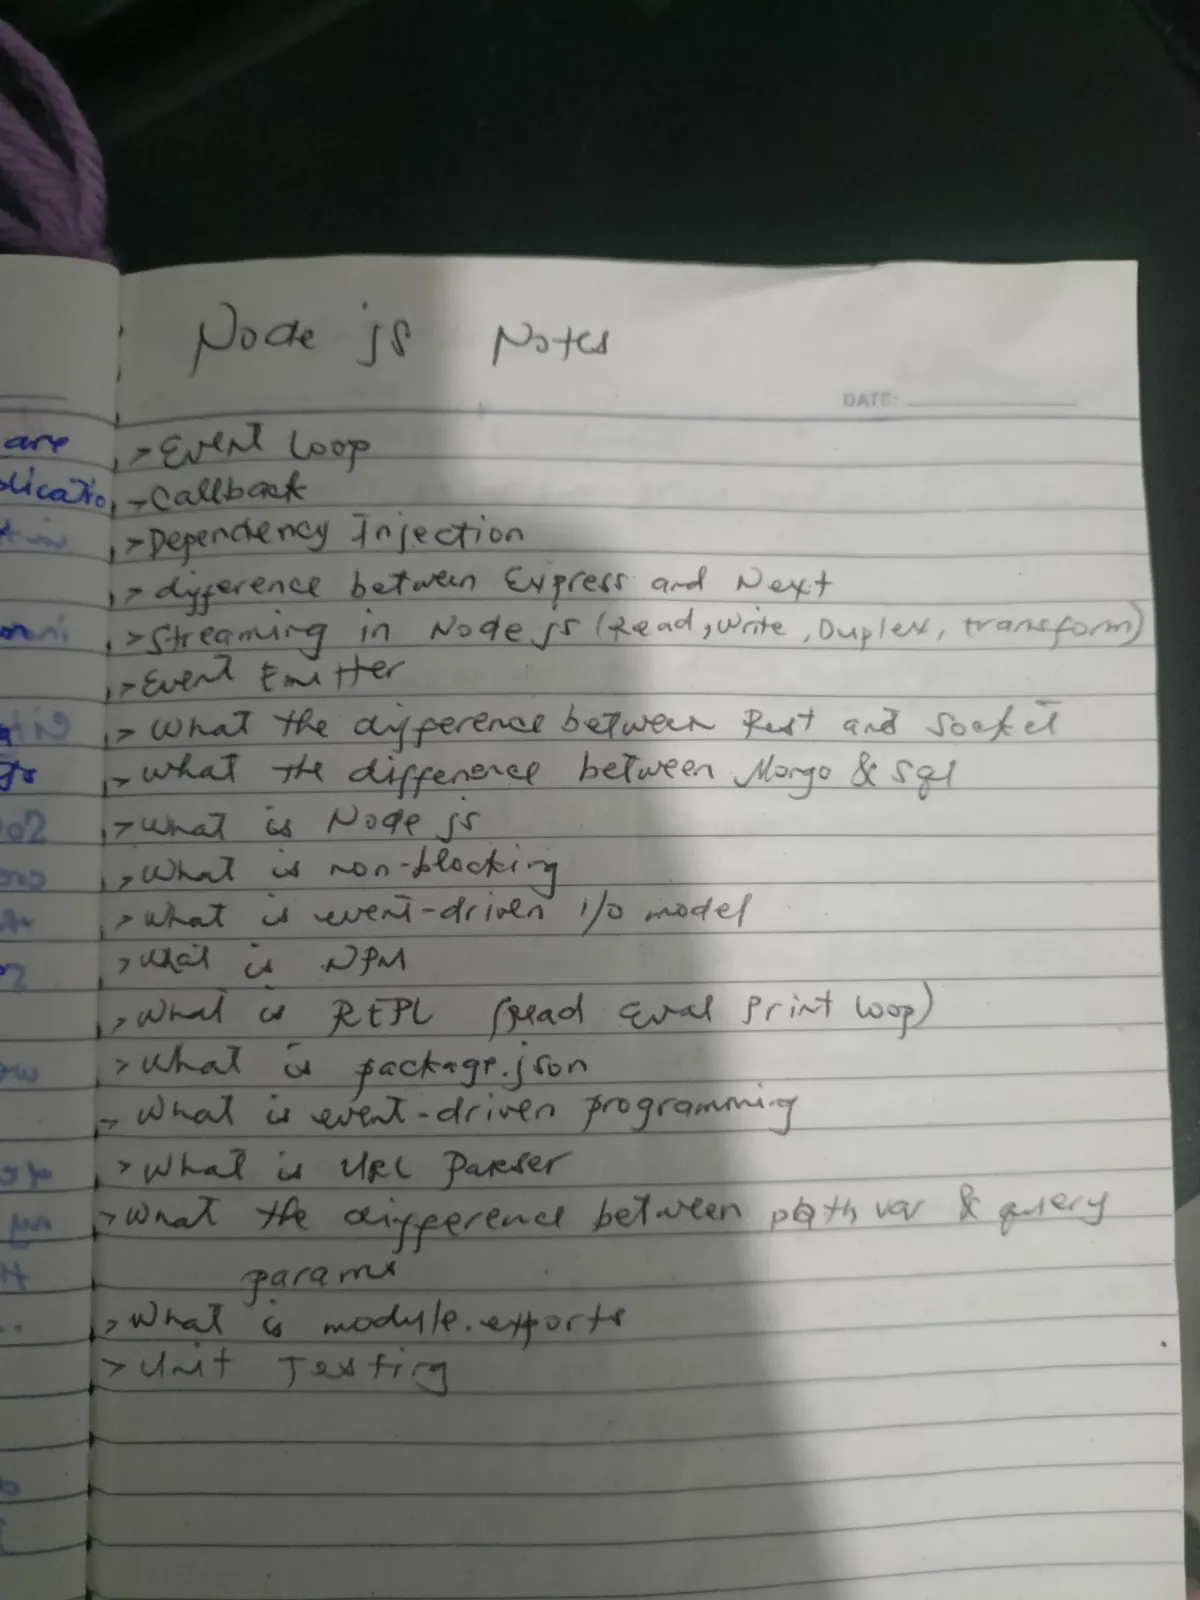 Node js Notes
DATE:
> Event Loop
> Callback
> Dependency Injection
> difference between Express and Next
> Streaming in Node js (Read, Write, Duplex, transform)
> Event Emitter
> What the difference between Rest and Socket
> What the difference between Mongo & Sql
> What is Node js
> What is non-blocking
> What is event-driven i/o model
> What is NPM
> What is REPL (Read Eval Print Loop)
> What is package.json
> What is event-driven programming
> What is URL Parser
> What the difference between path var & query
params
> What is module.exports
> Unit Testing
are
plicatio